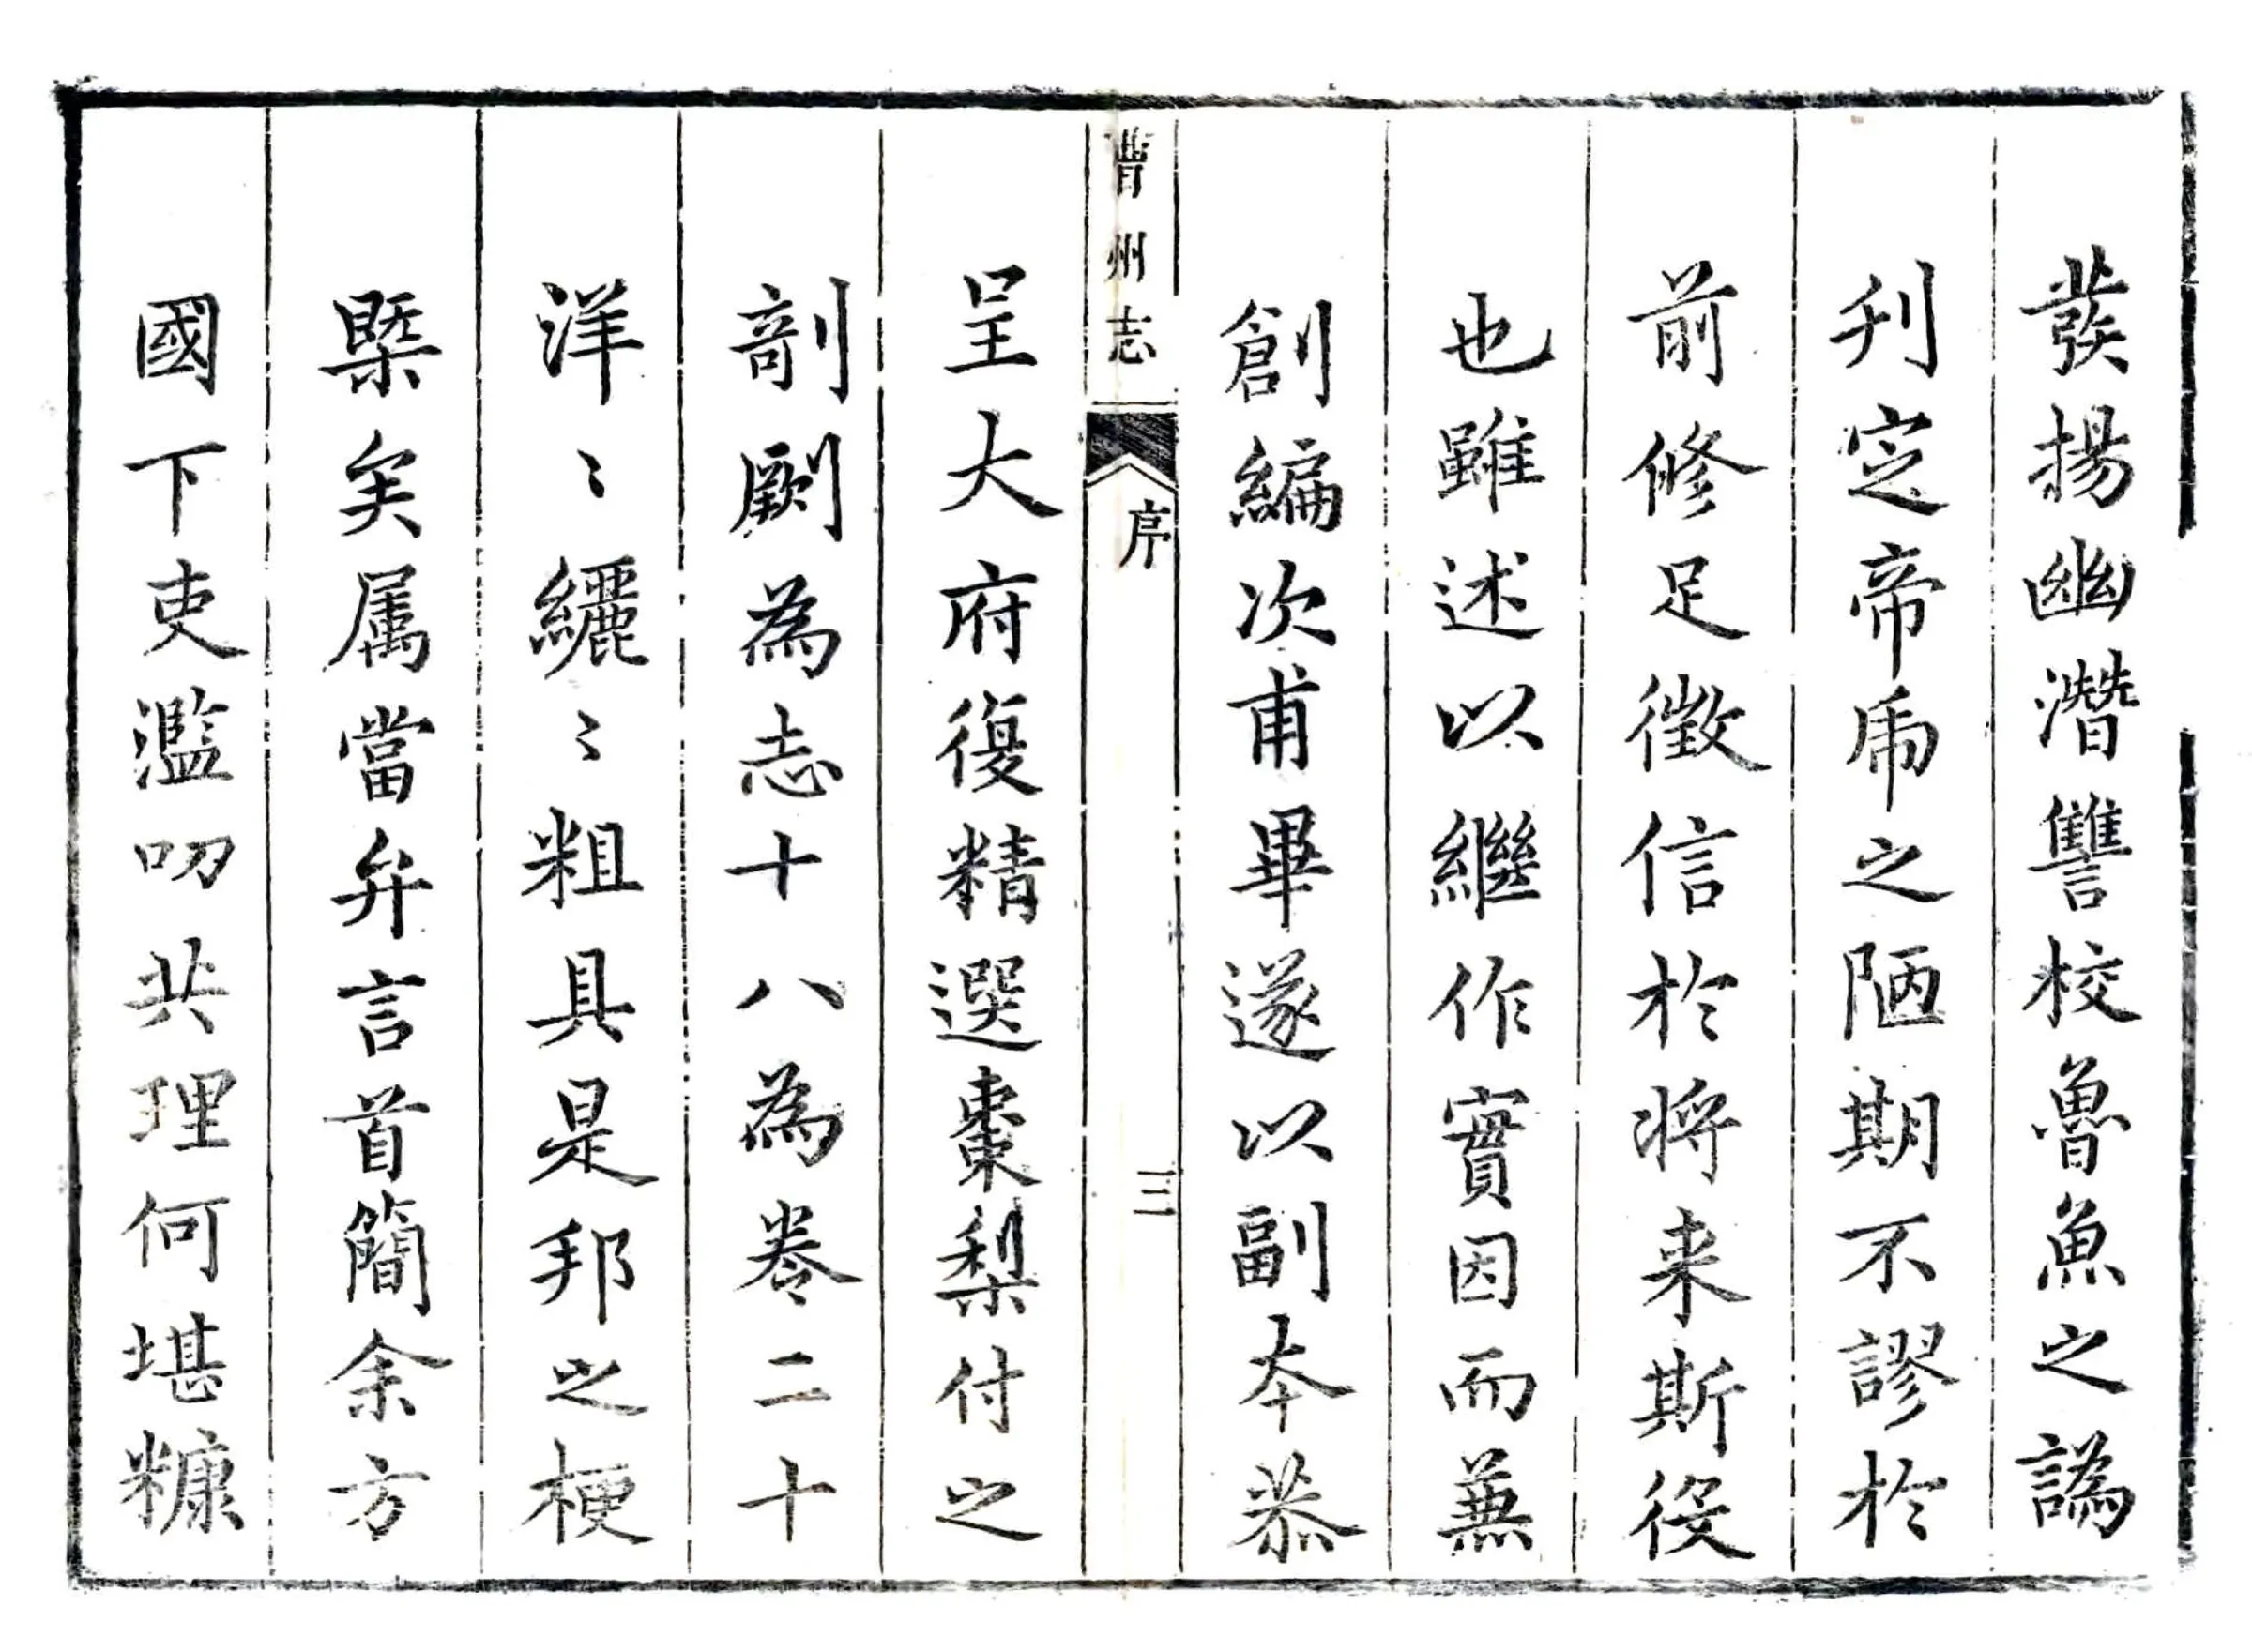 發揚幽潛讐校魯魚之譌
刋定帝虎之陋期不謬於
前修足徵信於將来斯役
也雖述以繼作實因而蕪
創編次甫畢遂以副夲恭
曹州志
序
三
呈大府復精選棗梨付之
剞劂為志十八為卷二十
洋〻纚〻粗具是邦之梗
槩矣属當弁言首簡余方
國下吏濫叨共理何堪糠